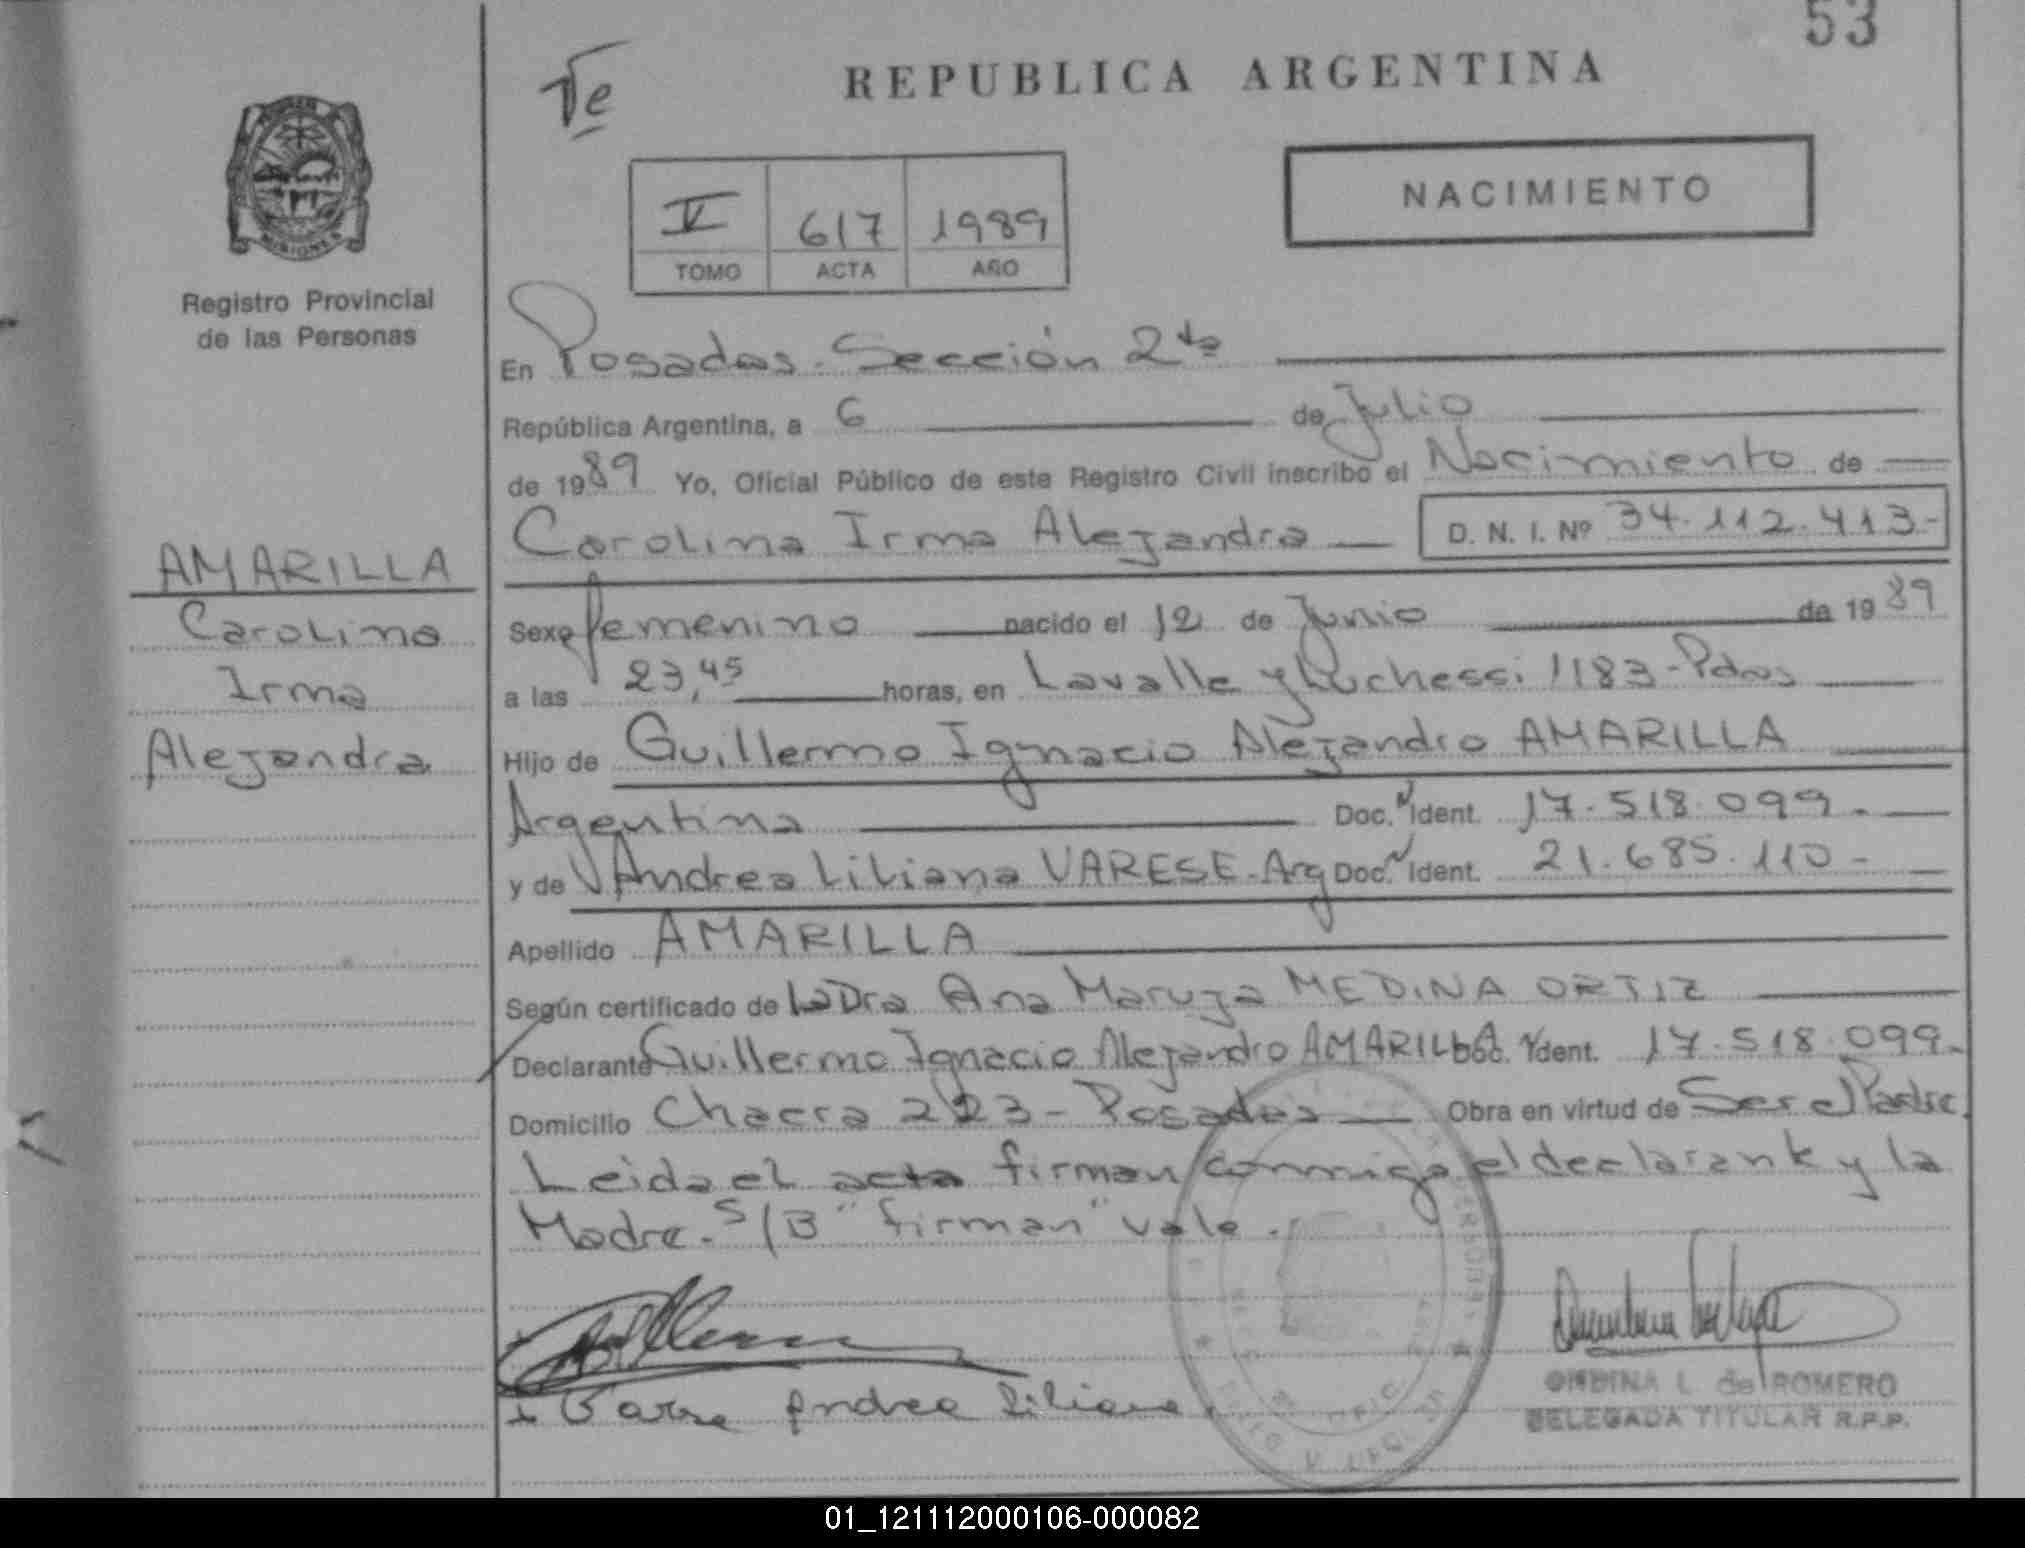 53
Te
REPUBLICA ARGENTINA
NACIMIENTO
V 617 1989
TOMO ACTA AÑO
MISIONES
Registro Provincial
de las Personas
En Posadas. Sección 2da
República Argentina, a 6 de Julio
de 1989 Yo, Oficial Público de este Registro Civil inscribo el Nacimiento de
Carolina Irma Alejandra D. N. I. Nº 34.112.413-
AMARILLA
Carolina
Irma
Alejandra
Sexo femenino nacido el 12 de Junio de 1989
a las 23,45 horas, en Lavalle y Luchessi 1183-Pdas
Hijo de Guillermo Ignacio Alejandro AMARILLA
Argentina Doc. Ident. 17.518.099.
y de Andrea Liliana VARESE-Arg Doc. Ident. 21.685.110-
Apellido AMARILLA
Según certificado de la Dra Ana Maruja MEDINA ORTIZ
Declarante Guillermo Ignacio Alejandro AMARILLA Doc. Ident. 17.518.099-
Domicilio Chacra 223-Posadas Obra en virtud de Ser el Padre.
Leida el acta firman conmigo el declarante y la
Madre. S/B "firman" vale.
Andrea Liliana
ONDINA L. de ROMERO
DELEGADA TITULAR R.P.P.
01_121112000106-000082